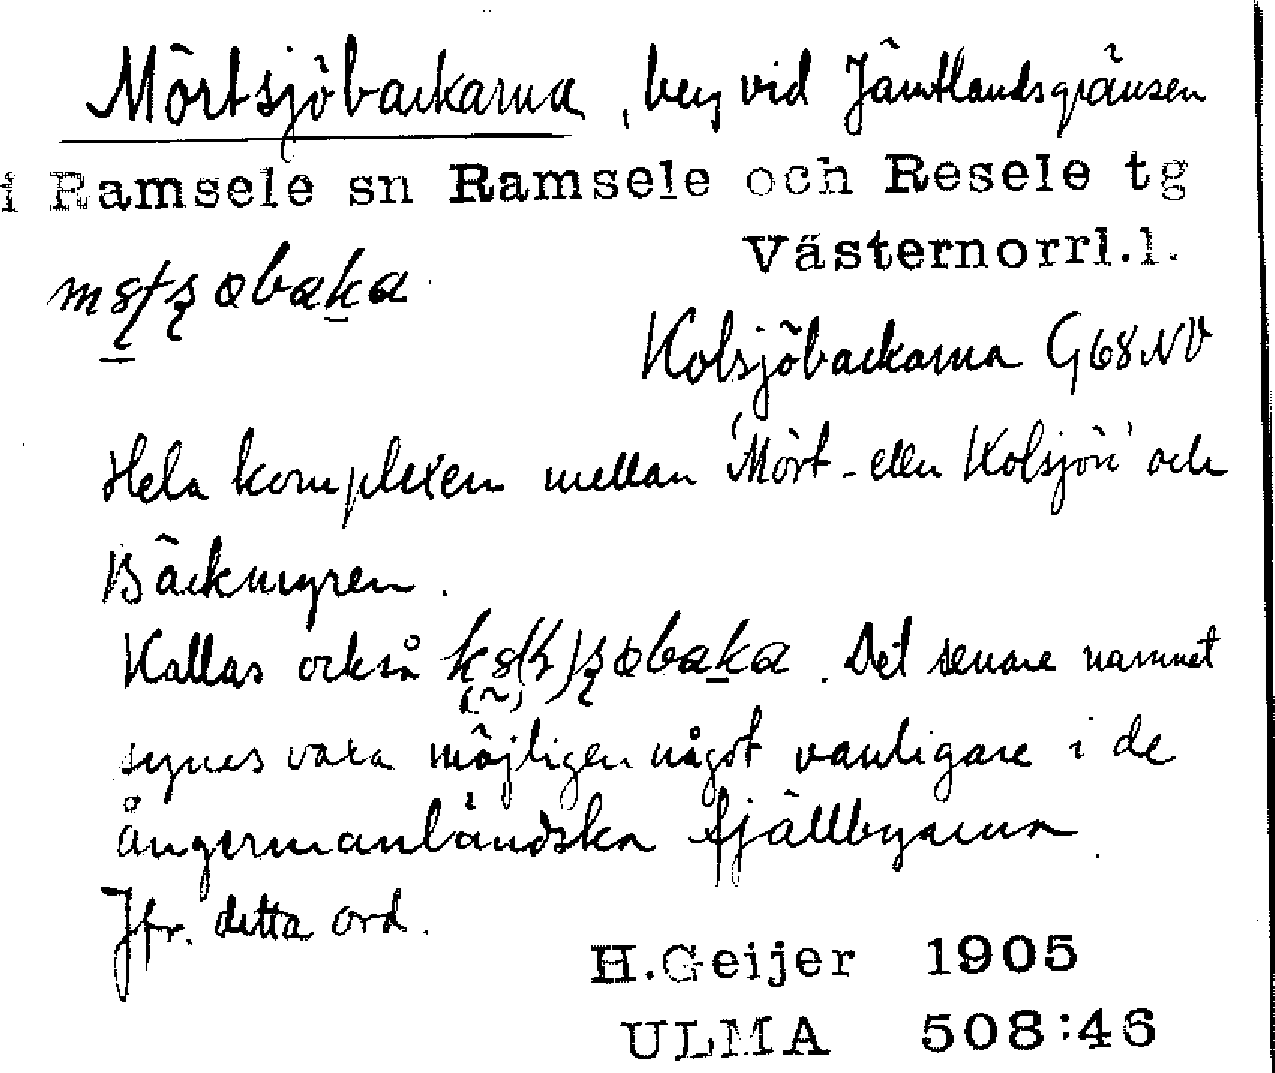 Mörtsjöbackarna, berg vid Jämtlandsgränsen
i Ramsele sn Ramsele och Resele tg
Västernorrl.l.
Kolsjöbackarna G68NV
Hela komplexen mellan 'Mört- eller Kolsjön' och
Bäckmyren.
Kallas också Det senare namnet
synes vara möjligen något vanligare i de
ångermanländska fjällbyarna.
Jfr. detta ord.
H.Geijer 1905
ULMA 508:46